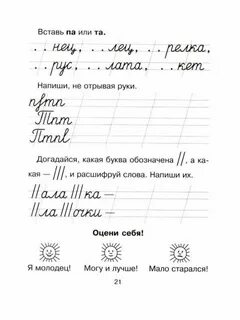 Вставь па или та.
. . нец, . . лец, . . релка,
. . рус, . . лата, . . кет
Напиши, не отрывая руки.
пптп
Тпт
Птпв
Догадайся, какая буква обозначена //, а ка-
кая — ///, и расшифруй слова. Напиши их.
//ала///ка –
//ла///очки –
Оцени себя!
Я молодец! Могу и лучше! Мало старался!
21